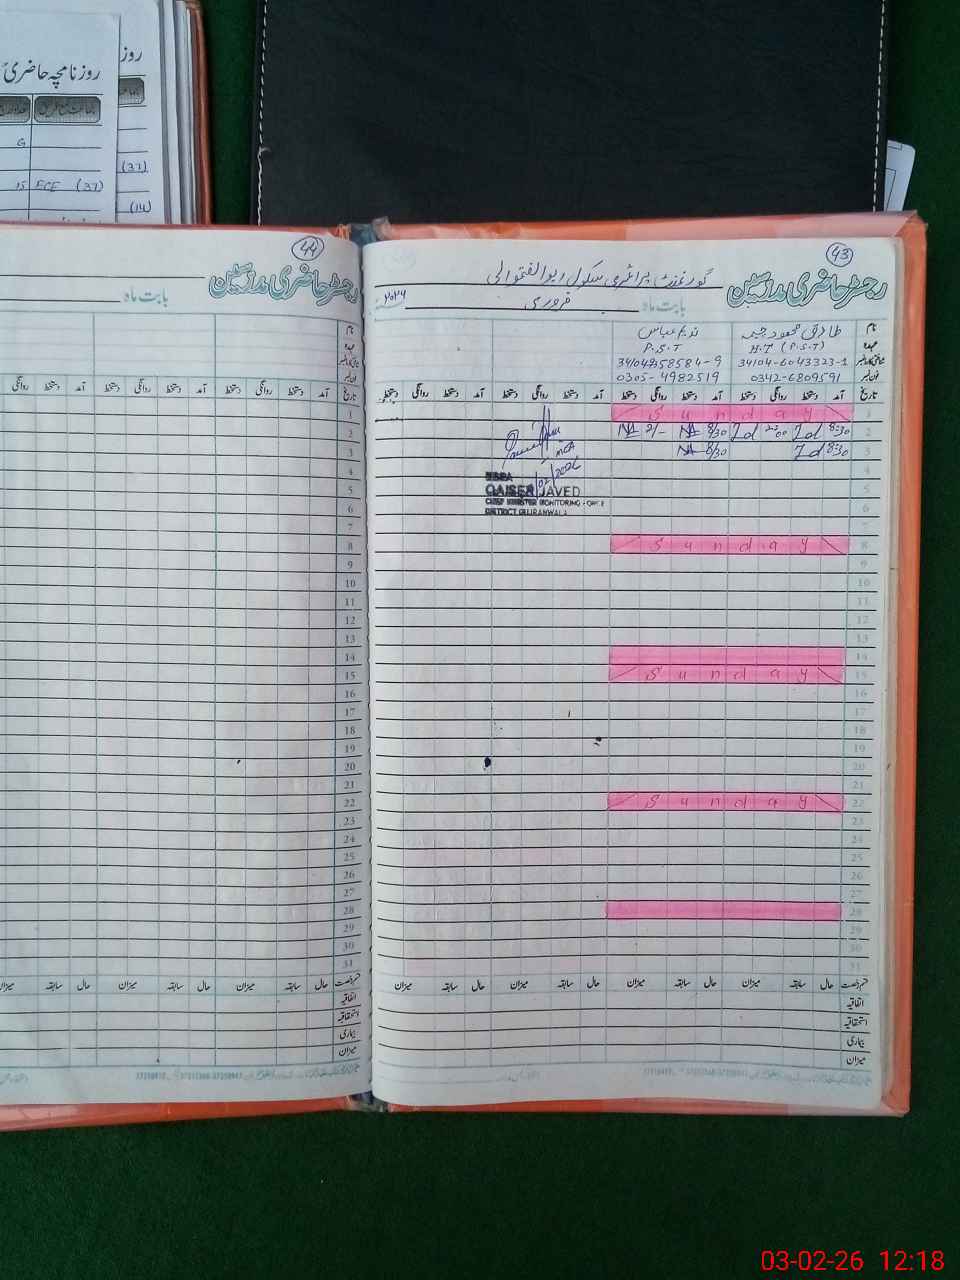 روزنامچہ حاضری
روز
G
(37)
15 ECE (37)
(14)
44
رجسٹر حاضری مدرسین
بابت ماہ
نام
عہدہ
شناختی کارڈ نمبر
فون نمبر
تاریخ آمد دستخط روانگی دستخط آمد دستخط روانگی دستخط آمد دستخط روانگی
1
2
3
4
5
6
7
8
9
10
11
12
13
14
15
16
17
18
19
20
21
22
23
24
25
26
27
28
29
30
31
قسم رخصت حال سابقہ میزان حال سابقہ میزان حال سابقہ
اتفاقیہ
استحقاقیہ
بیماری
میزان
43
رجسٹر حاضری مدرسین
گورنمنٹ پرائمری سکول
بابت ماہ فروری ۲۰۲۶
نام طارق محمود چیمہ ندیم عباس
عہدہ H.T (P.S.T) P.S.T
شناختی کارڈ نمبر 34104-6043323-1
فون نمبر 0342-6809591 0305-4982519
تاریخ آمد دستخط روانگی دستخط آمد دستخط روانگی دستخط آمد دستخط روانگی دستخط آمد دستخط روانگی دستخط
1 Sunday
2 8:30 2:00 8/30 2/-
3 8:30 8/30
MEA
QAISER JAVED
CHIEF MINISTER MONITORING
DISTRICT GUJRANWALA
4
5
6
7
8 Sunday
9
10
11
12
13
14
15 Sunday
16
17
18
19
20
21
22 Sunday
23
24
25
26
27
28
29
30
31
قسم رخصت حال سابقہ میزان حال سابقہ میزان حال سابقہ میزان حال سابقہ میزان
اتفاقیہ
استحقاقیہ
بیماری
میزان
03-02-26 12:18